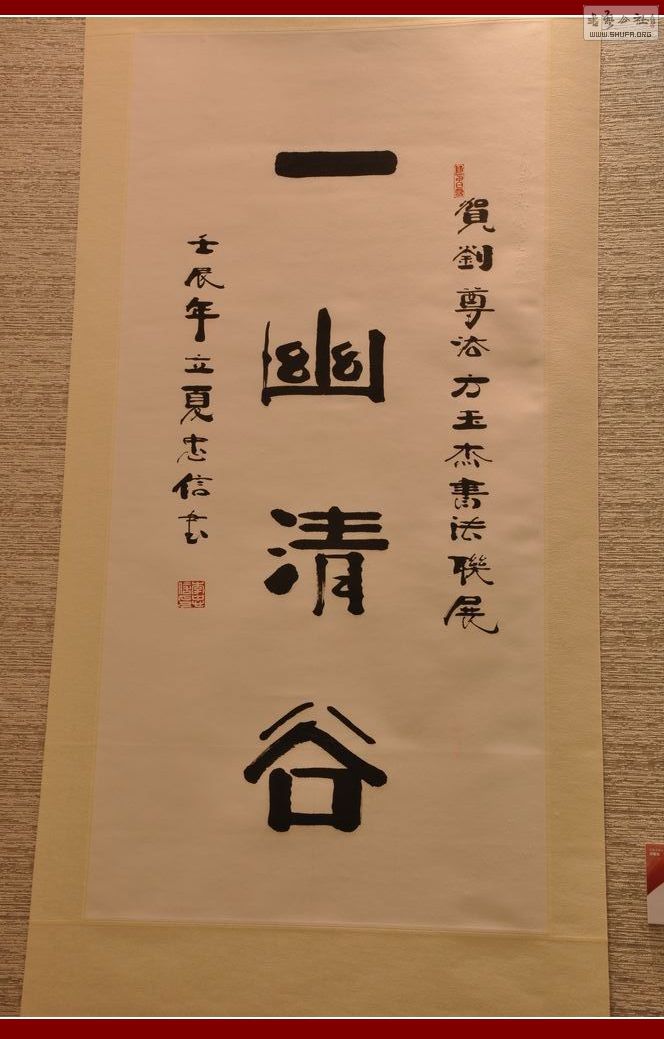 賀劉尊法方玉杰書法聯展
一幽清谷
壬辰年立夏忠信书
书艺公社
WWW.SHUFA.ORG